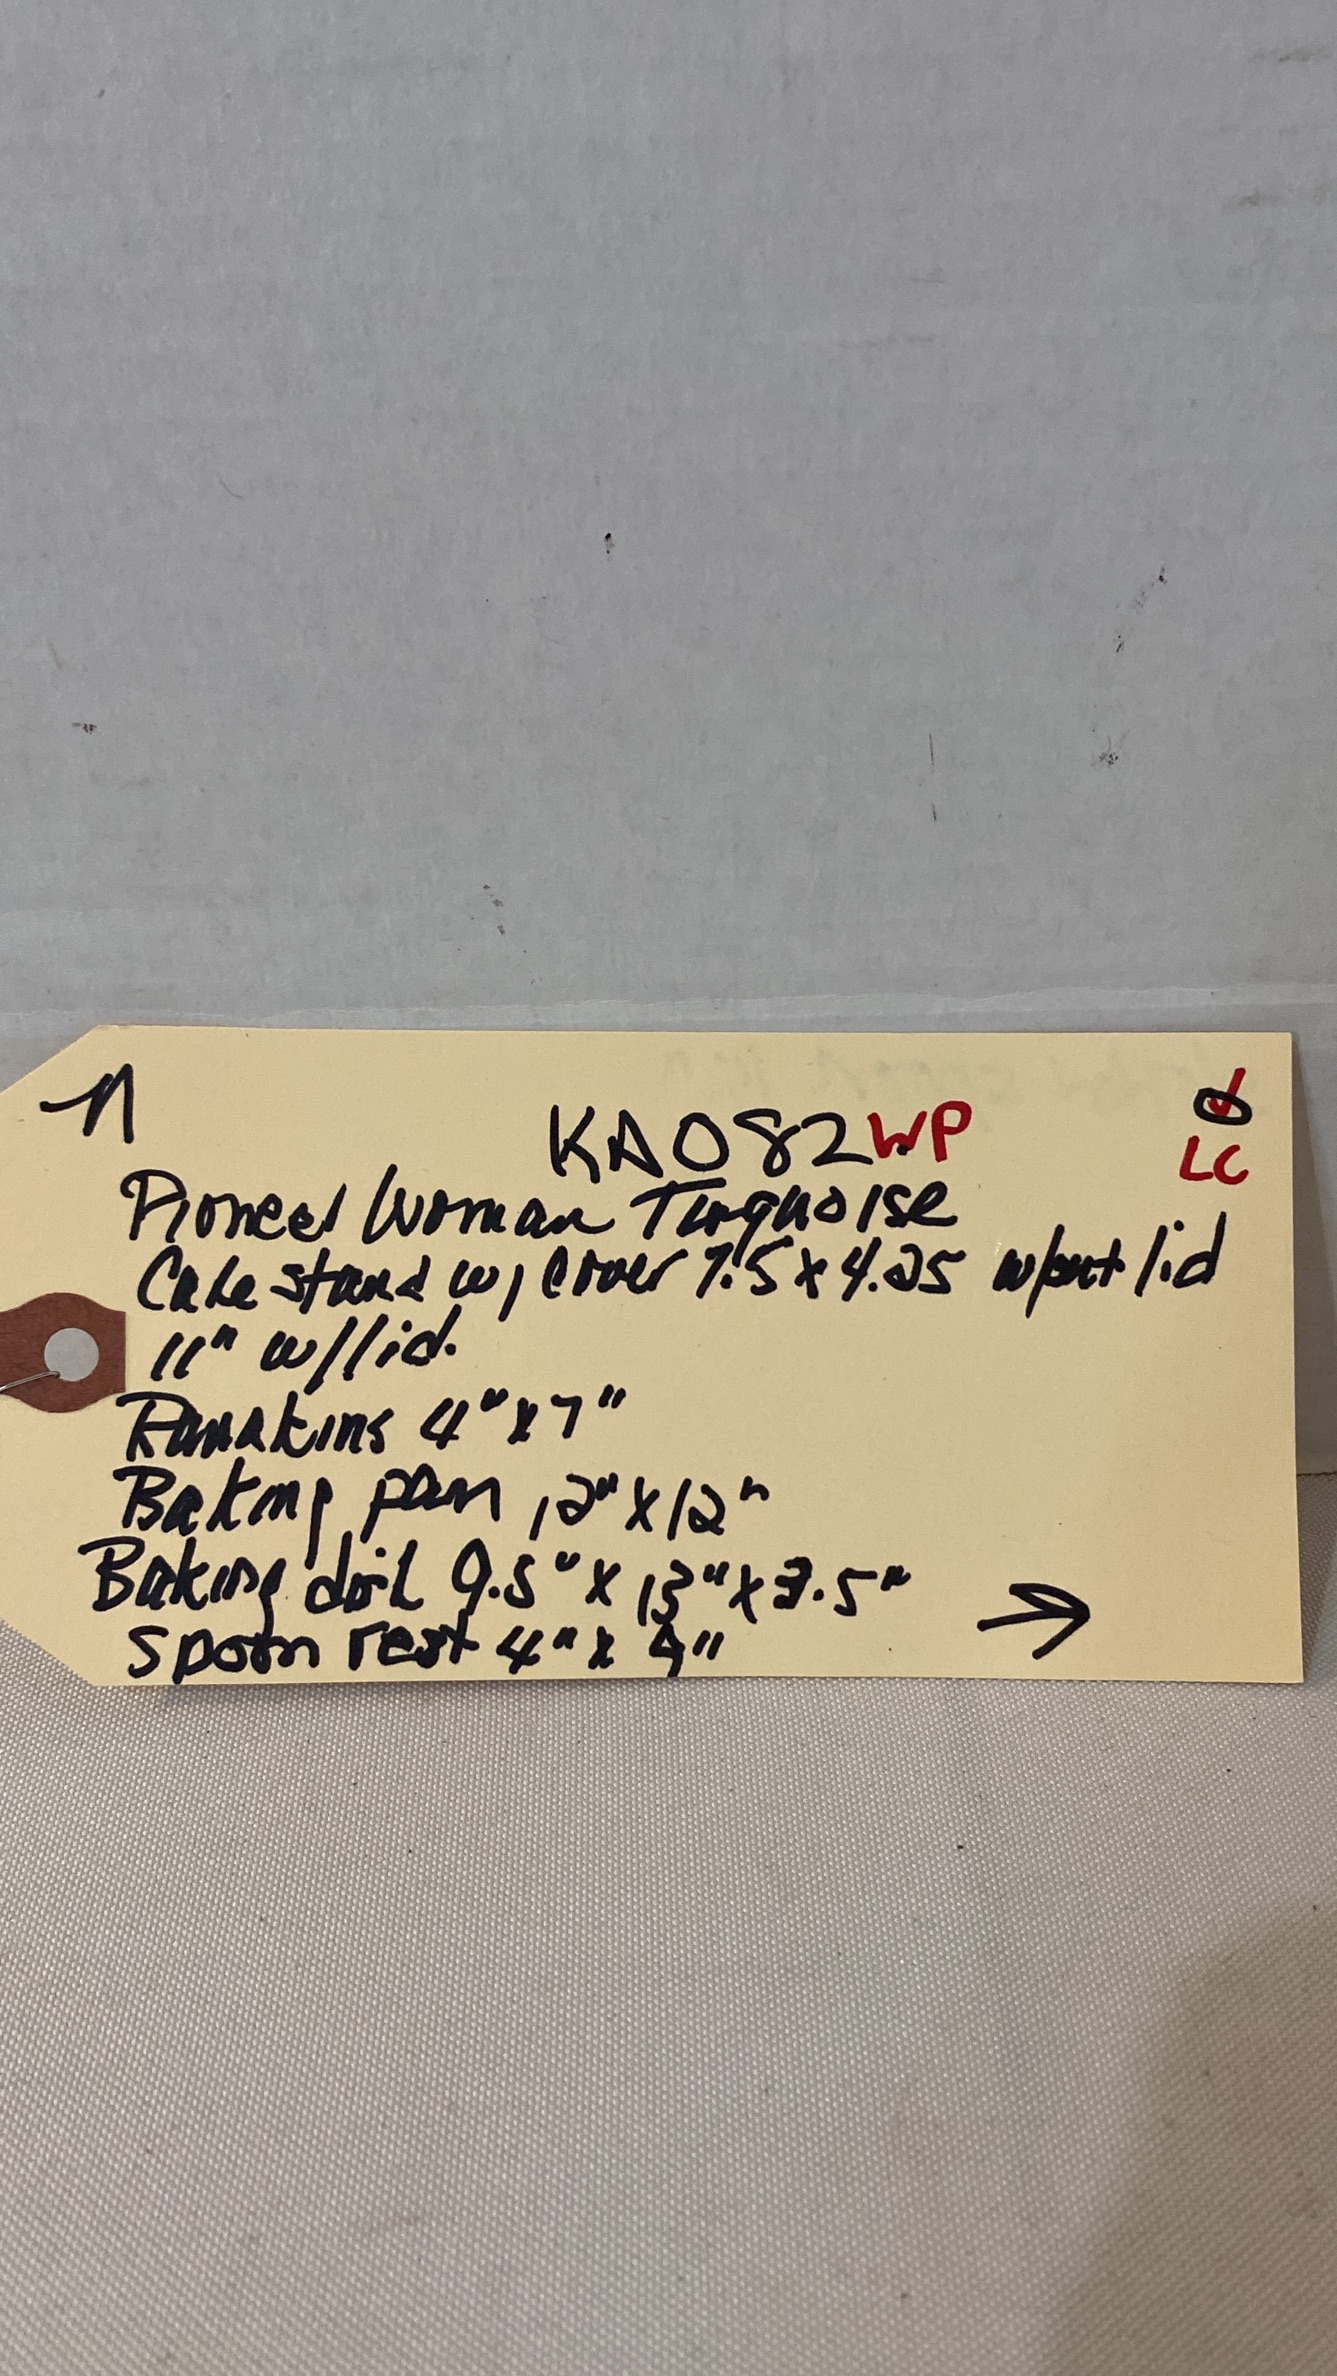 n
KA082 WP
LC
Pioneer Woman Turquoise
Cake stand w/ Cover 7.5 x 4.25 w/out lid
11" w/lid.
Ramakins 4" x 7"
Baking pan 12" x 12"
Baking dish 9.5" x 13" x 3.5"
spoon rest 4" x 9"